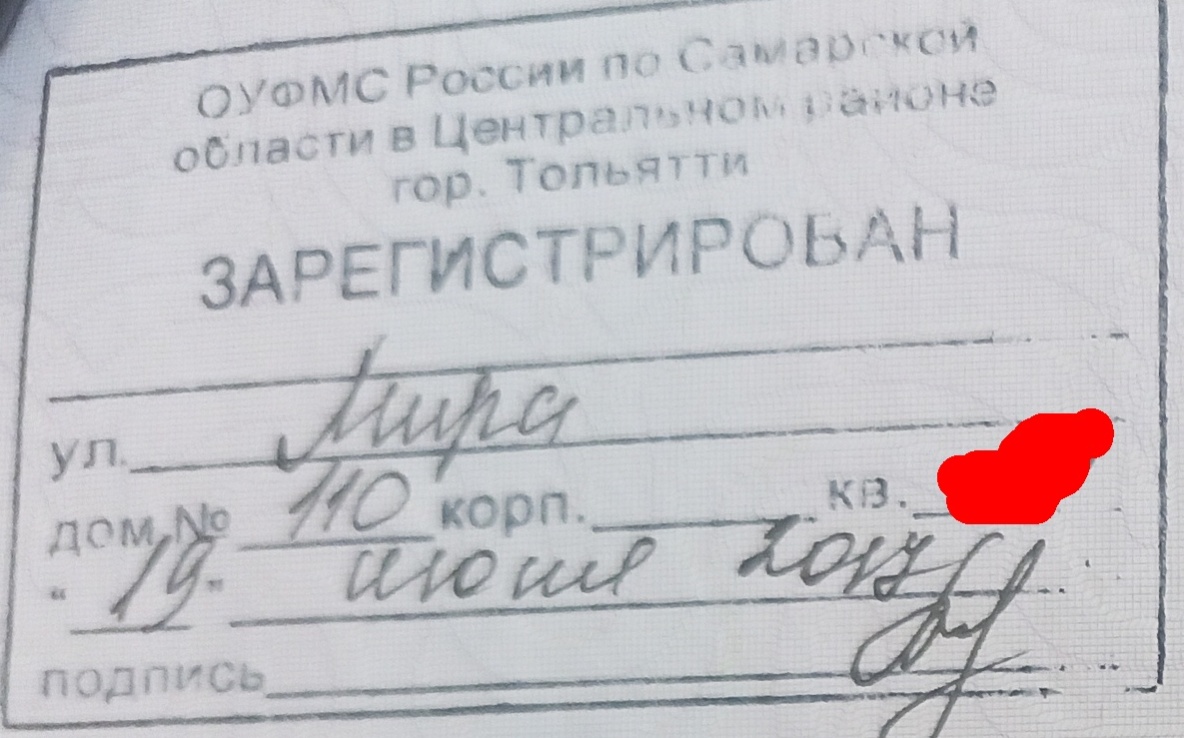 ОУФМС России по Самарской
области в Центральном районе
гор. Тольятти
ЗАРЕГИСТРИРОВАН
ул. Мира
дом № 110 корп. кв.
"19" 2017
подпись